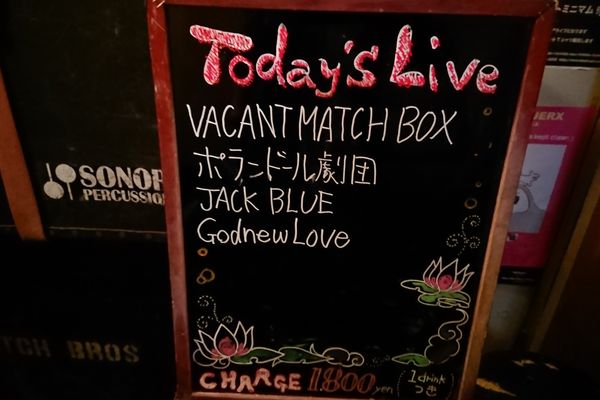 Today's Live
VACANT MATCH BOX
ポランドール劇団
JACK BLUE
GodnewLove
CHARGE 1800 yen (1drink つき)
SONOR
PERCUSSION
TCH BROS